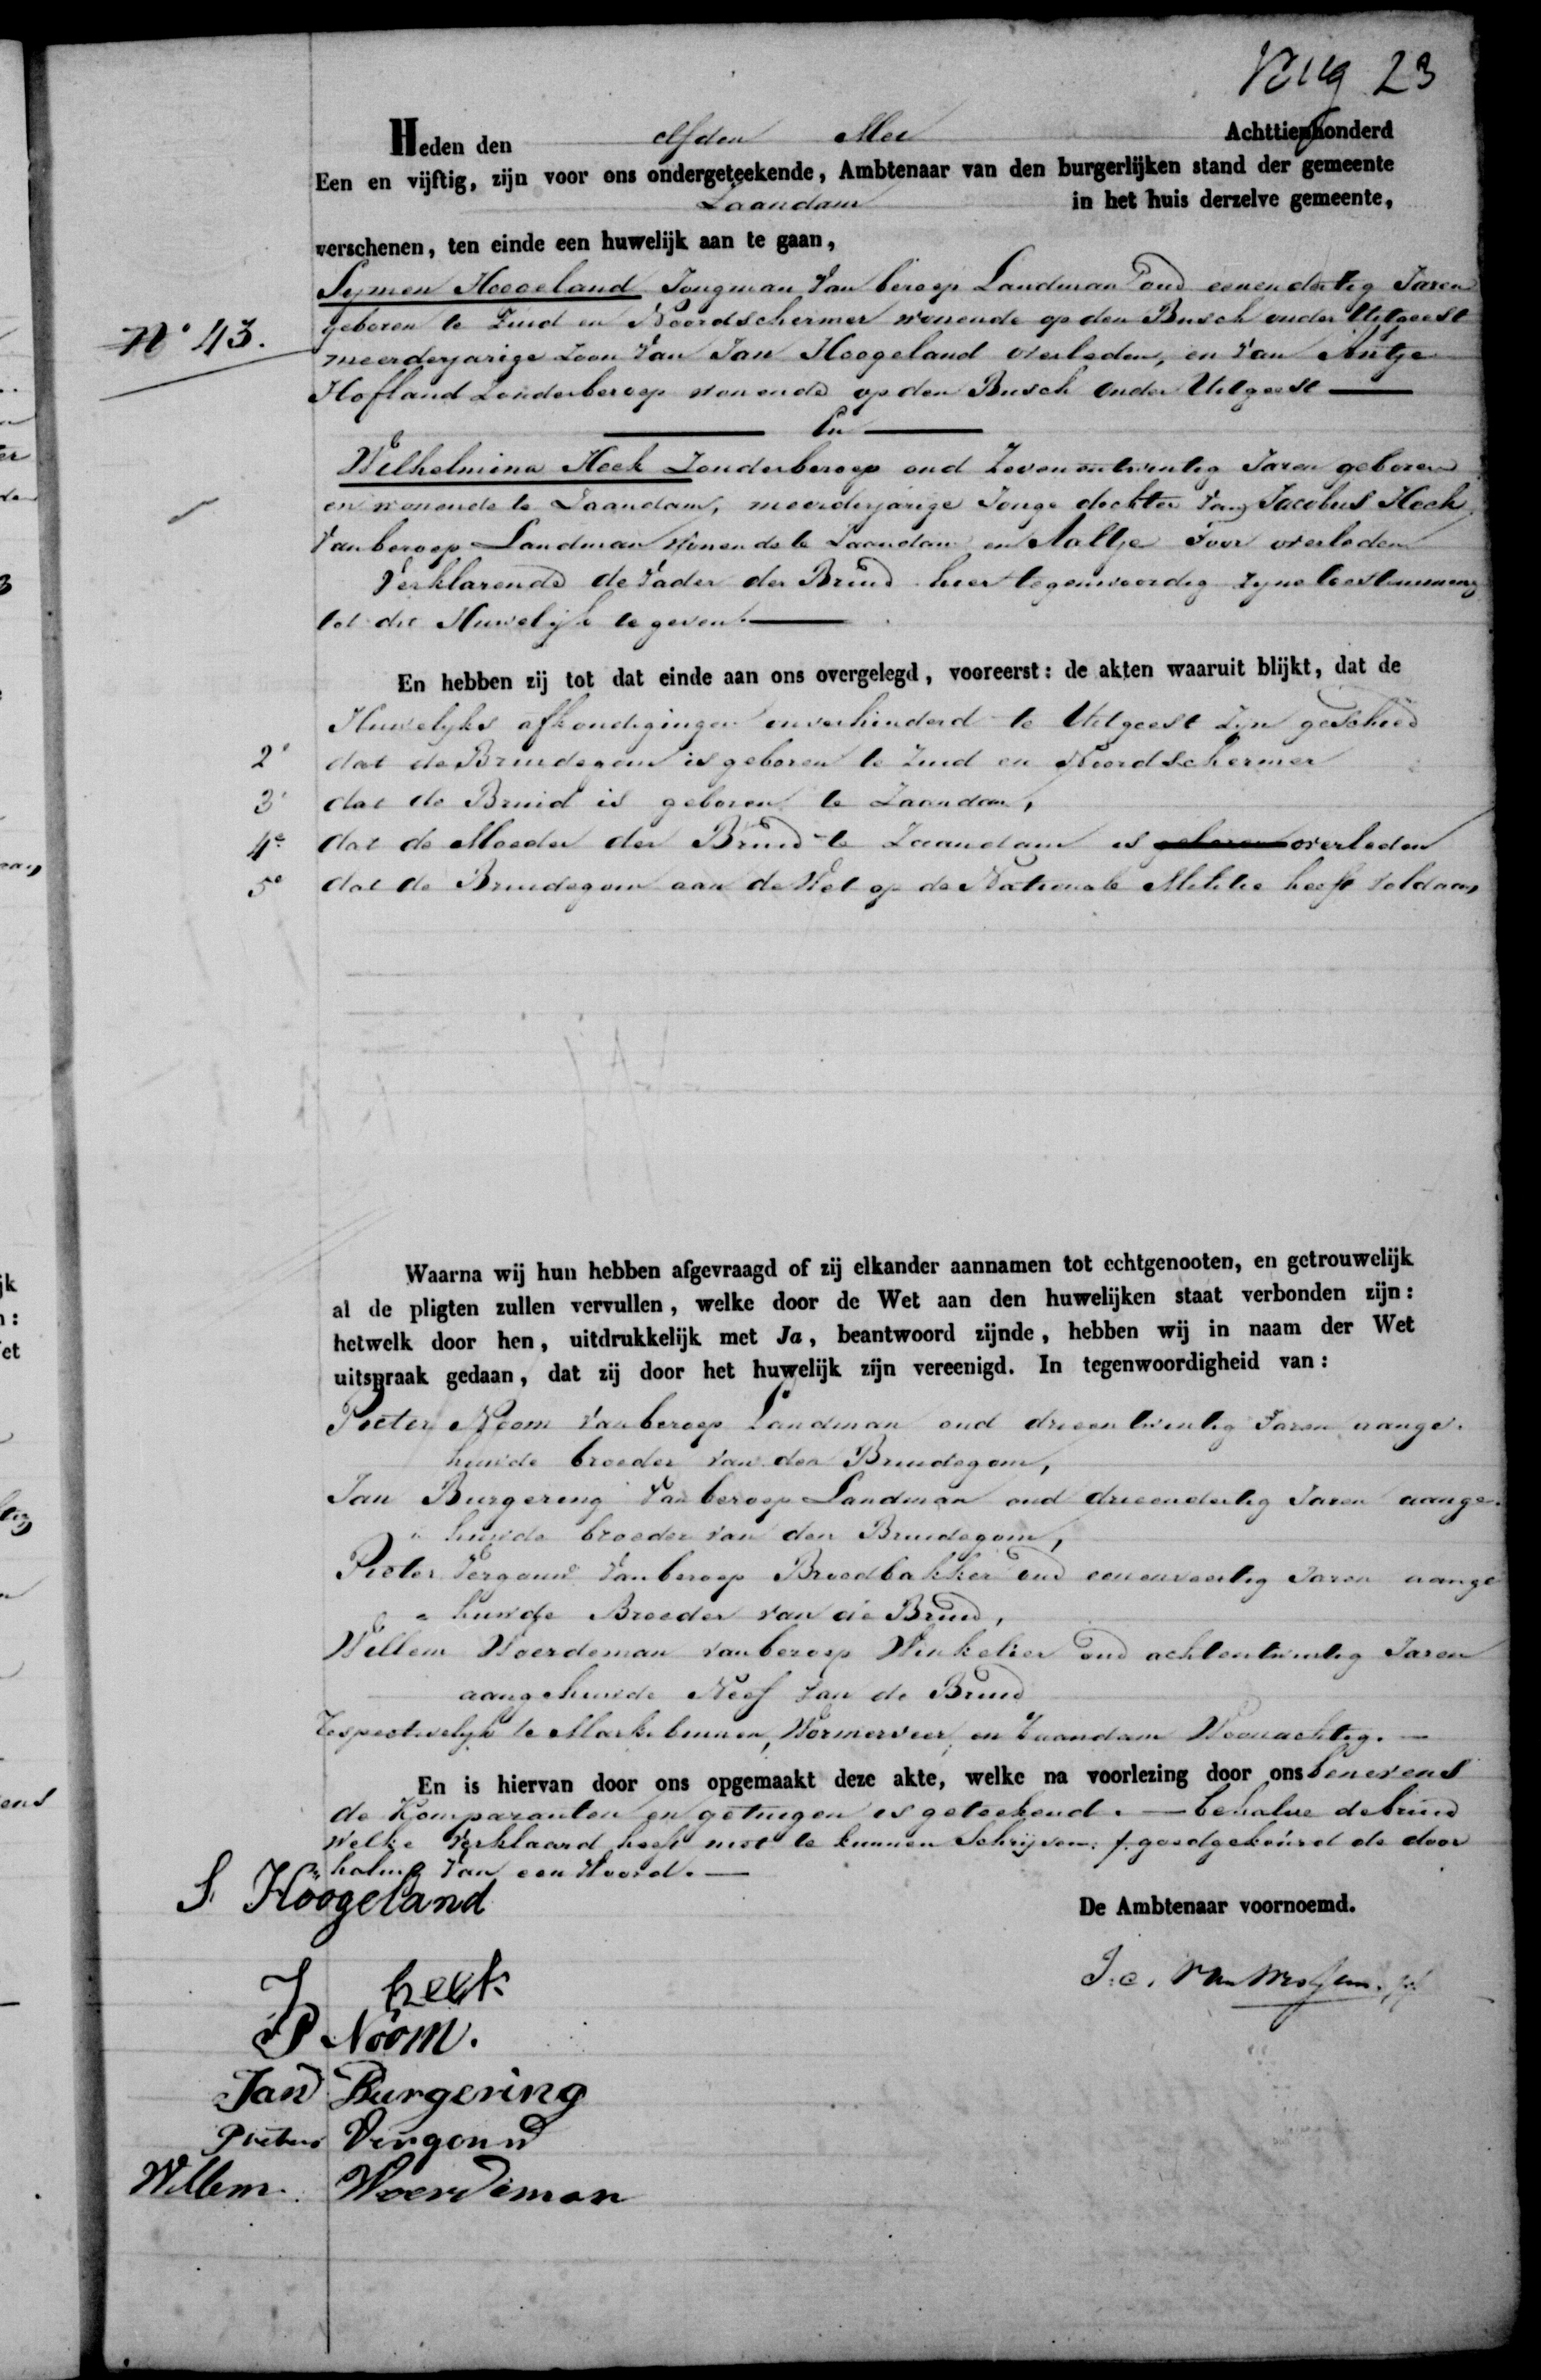 23
Heden den elfden Mei Achttienhonderd
Een en vijftig, zijn voor ons ondergeteekende, Ambtenaar van den burgerlijken stand der gemeente
Zaandam in het huis derzelve gemeente,
verschenen, ten einde een huwelijk aan te gaan,
Symen Hoogeland Jongman van beroep Landman oud eenendertig Jaren
N° 43. geboren te Zuid en Noordschermer wonende op den Busch onder Uitgeest
meerderjarige Zoon van Jan Hoogeland overleden, en van Antje
Hofland Zonderberoep wonende op den Busch onder Uitgeest
En
Wilhelmina Heek Zonderberoep oud Zevenentwintig Jaren geboren
en wonende te Zaandam, meerderjarige Jonge dochter van Jacobus Heek
van beroep Landman wonende te Zaandam en Aaltje overleden
Verklarende de Vader der Bruid hier tegenwoordig zyne toestemming
tot dit Huwelijk te geven.
En hebben zij tot dat einde aan ons overgelegd, vooreerst: de akten waaruit blijkt, dat de
Huwelyks afkondigingen onverhinderd te Uitgeest zyn geschied
2e dat de Bruidegom is geboren te Zuid en Noordschermer
3e dat de Bruid is geboren te Zaandam,
4e dat de Moeder der Bruid te Zaandam is geboren overleden
5e dat de Bruidegom aan de Wet op de Nationale Militie heeft voldaan
Waarna wij hun hebben afgevraagd of zij elkander aannamen tot echtgenooten, en getrouwelijk
al de pligten zullen vervullen, welke door de Wet aan den huwelijken staat verbonden zijn:
hetwelk door hen, uitdrukkelijk met Ja, beantwoord zijnde, hebben wij in naam der Wet
uitspraak gedaan, dat zij door het huwelijk zijn vereenigd. In tegenwoordigheid van:
Pieter Noom van beroep Landman oud drieentwintig Jaren aange-
huwde broeder van den Bruidegom,
Jan Burgering van beroep Landman oud drieendertig Jaren aange-
huwde broeder van den Bruidegom,
Pieter Vergouw van beroep Broodbakker oud eenenveertig Jaren aange
huwde Broeder van de Bruid,
Willem Woerdeman van beroep Winkelier oud achtentwintig Jaren
aangehuwde Neef van de Bruid
respectivelyk te Markebinnen, Wormerveer, en Zaandam Woonachtig.
En is hiervan door ons opgemaakt deze akte, welke na voorlezing door ons benevens
de Komparanten en getuigen is geteekend. — behalve de bruid
welke verklaard heeft niet te kunnen Schrijven. goedgekeurd de door
haling van een Woord. —
S Hoogeland
De Ambtenaar voornoemd.
J heek
P Noom.
Jan Burgering
Pieter Vergouw
Willem Woerdeman